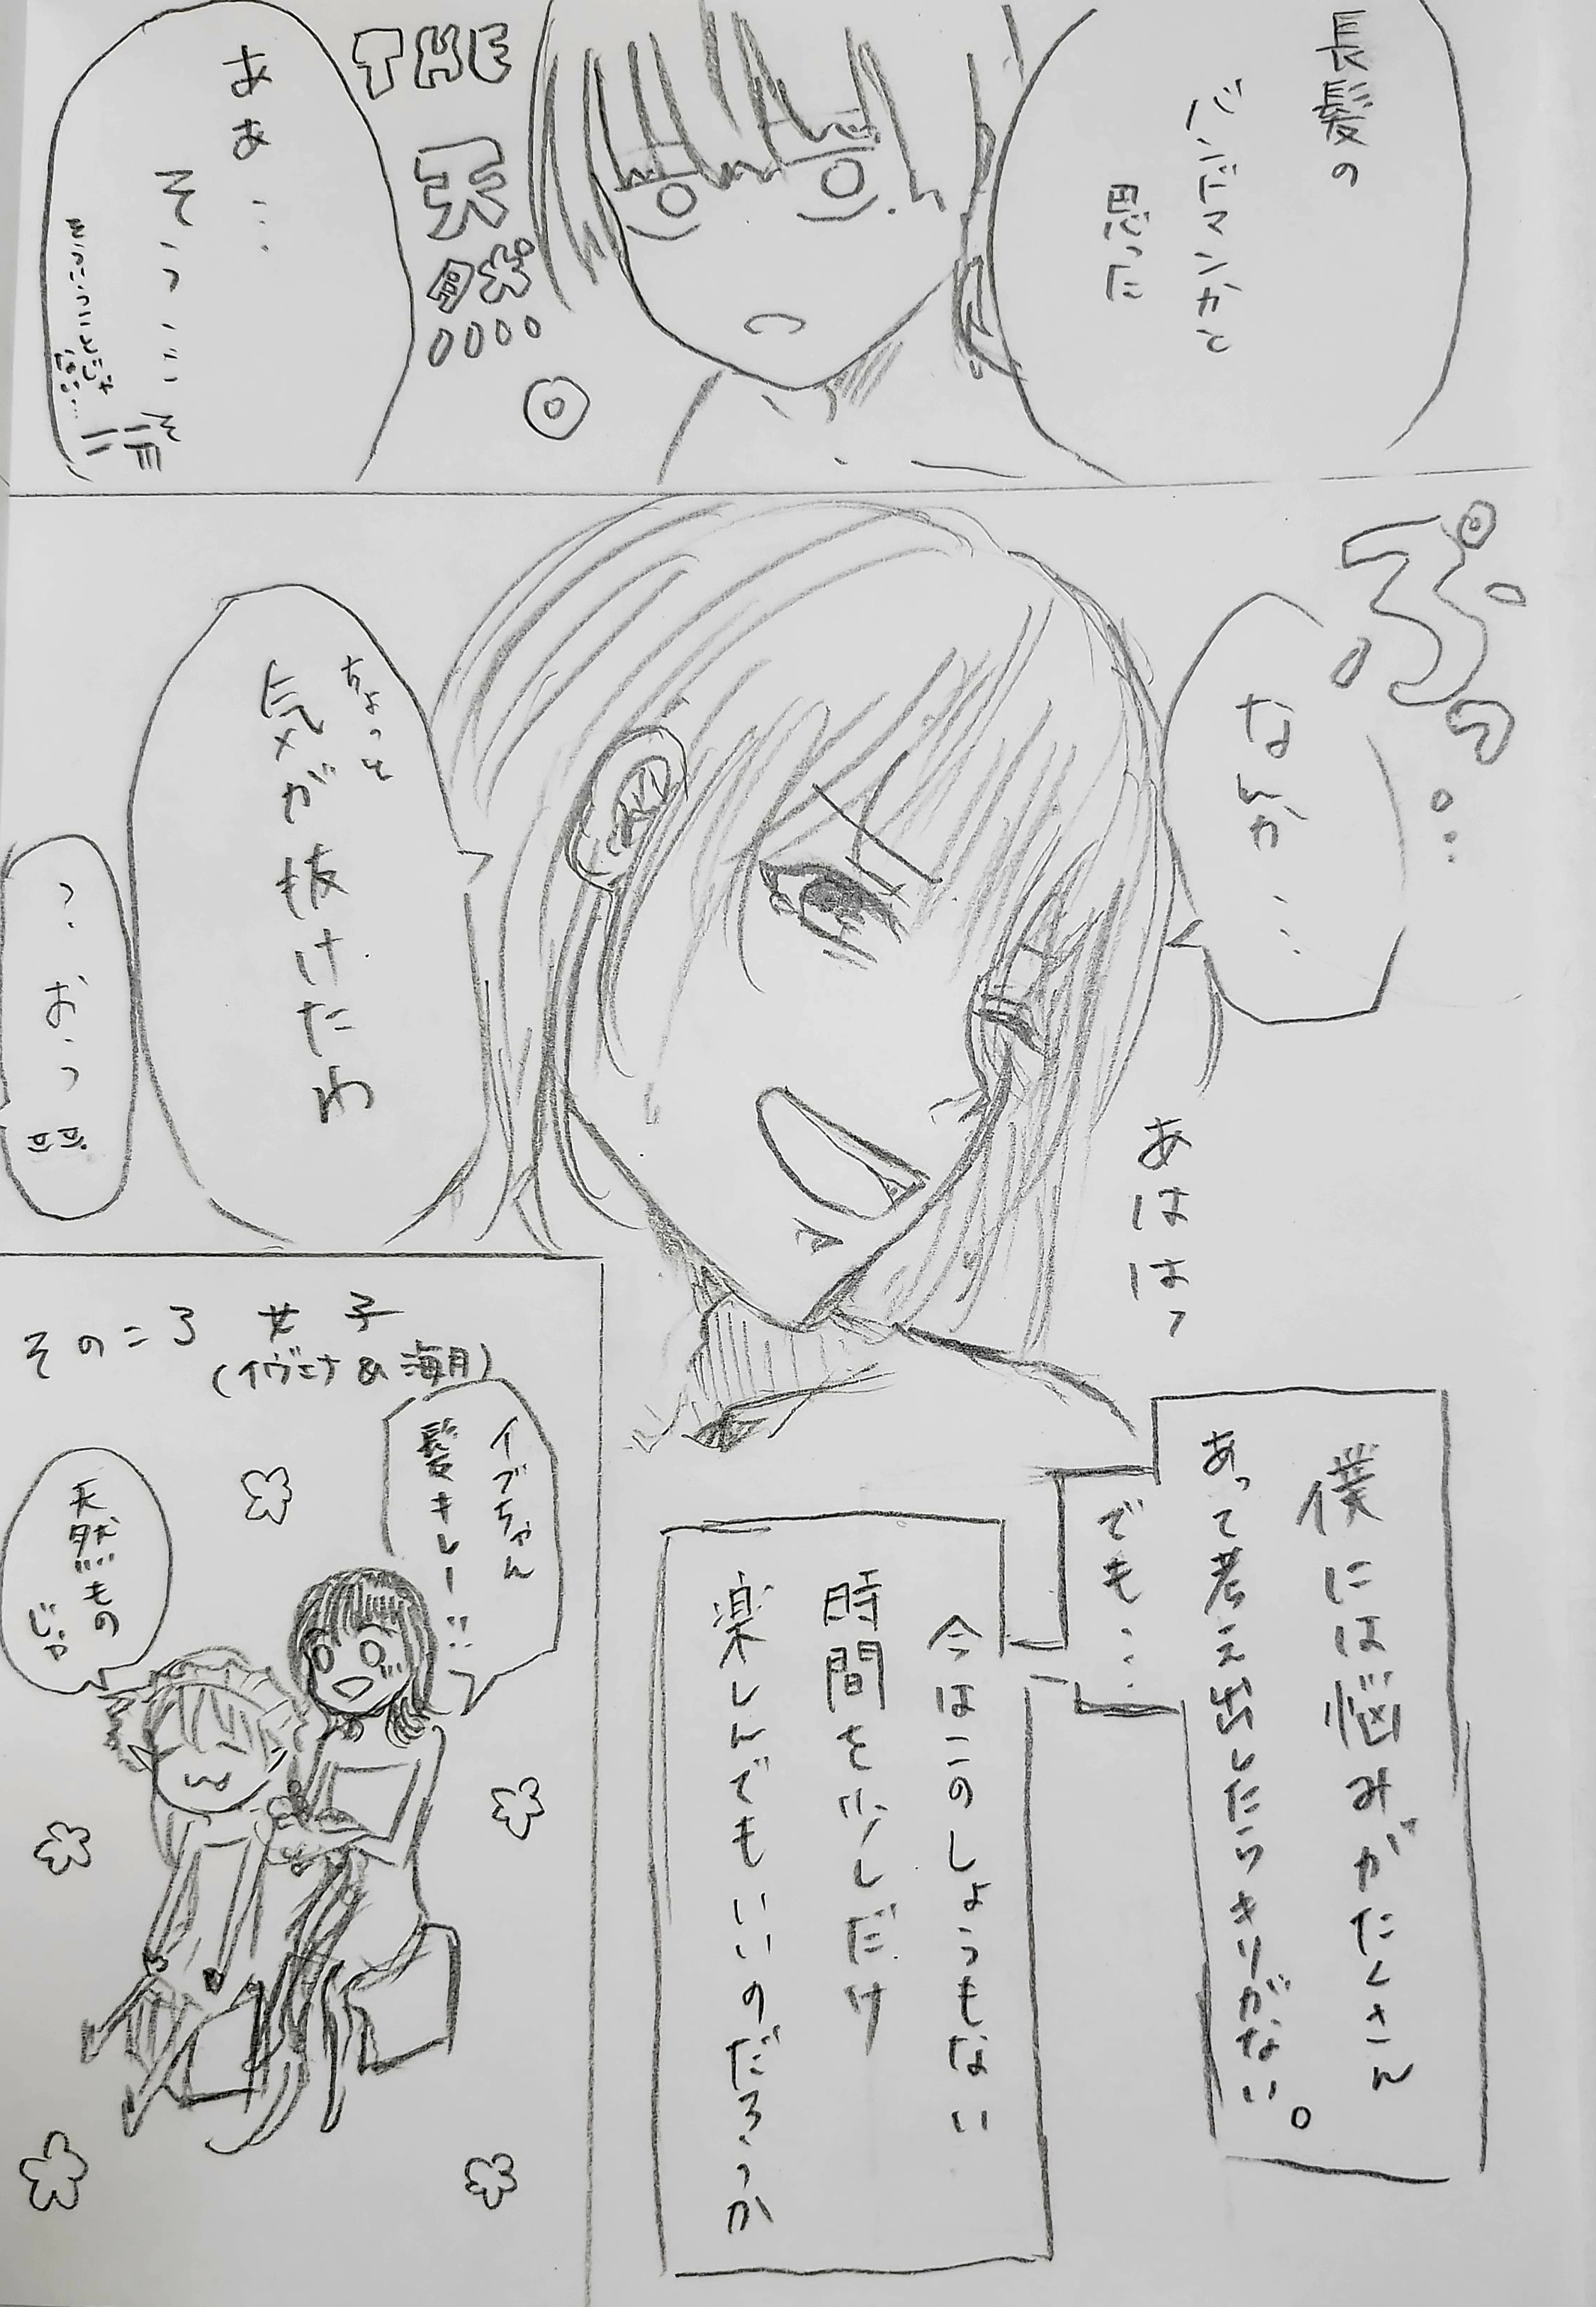 長髪の
バンドマンかと
思った
THE
天
然
ああ…
そっこ
ぷっ
なんか…
ちょっと
気が抜けたわ
っおっ!!
あははっ
僕には悩みがたくさん
あって考え出したらキリがない。
でも…
今はこのしょうもない
時間を少しだけ
楽しんでもいいのだろうか
そのころ女子
(イヴミナ&海月)
イブちゃん
髪キレー!!
天然もの
じゃ